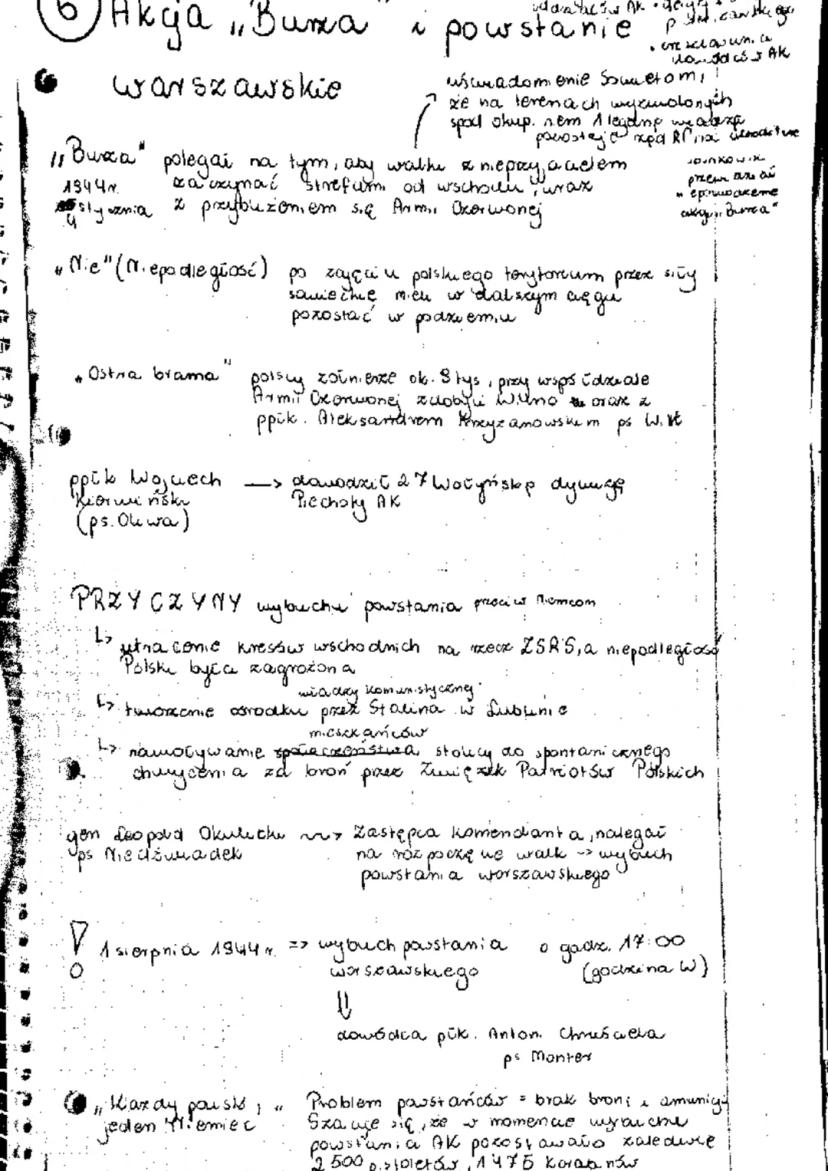 6 Akcja „Burza" i powstanie
warszawskie
uświadomienie Sowietom,
że na terenach wyzwolonych
spod okup. niem 1 legalną władzą
pozostaje rząd RP na uchodźtwie
„Burza" polegał na tym, aby walkę z nieprzyjacielem
1944r. zaczynać strefami od wschodu, wraz
stycznia z przybliżeniem się Armii Czerwonej
„Nie" (Niepodległość) po zajęciu polskiego terytorium przez siły
sowieckie mieli w dalszym ciągu
pozostać w podziemiu
„Ostra brama" polscy żołnierze ok. 9 tys, przy współudziale
Armii Czerwonej zdobyli Wilno oraz z
ppłk. Aleksandrem Krzyżanowskim ps Wilk
ppłk Wojciech —> dowodził 27 Wołyńską dywizją
Kierwiński Piechoty AK
(ps. Oliwa)
PRZYCZYNY wybuchu powstania przeciw Niemcom
↳ utracenie kresów wschodnich na rzecz ZSRS, a niepodległość
Polski była zagrożona
władzy komunistycznej
↳ tworzenie ośrodku przez Stalina w Lublinie
mieszkańców
↳ nawoływanie społeczeństwa stolicy do spontanicznego
chwycenia za broń przez Związek Patriotów Polskich
gen Leopold Okulicki ~> Zastępca komendanta, nalegał
ps Niedźwiadek na rozpoczęcie walk -> wybuch
powstania warszawskiego
! 1 sierpnia 1944r. => wybuch powstania o godz. 17:00
warszawskiego (godzina W)
⇓
dowódca płk. Antoni Chruściela
ps Monter
„Każdy pocisk, " Problem powstańców = brak broni i amunicji
jeden Niemiec Szacuje się, że w momencie wybuchu
powstania AK pozostawało zaledwie
2 500 pistoletów, 1 475 karabinów